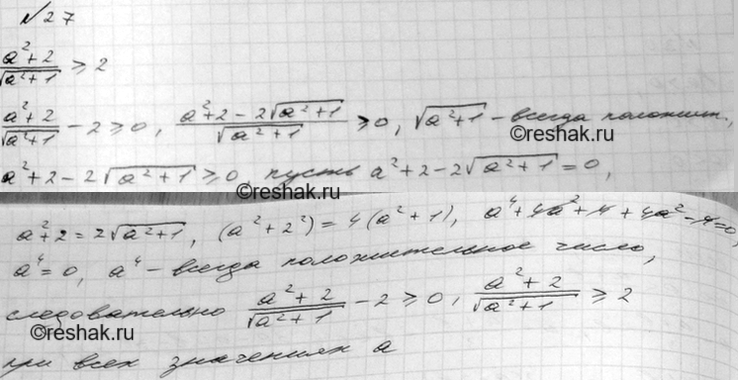 №27
(a²+2)/√(a²+1) ≥ 2
(a²+2)/√(a²+1) − 2 ≥ 0, (a²+2−2√(a²+1))/√(a²+1) ≥ 0, √(a²+1) – всегда положит.,
©reshak.ru
a²+2−2√(a²+1) ≥ 0, пусть a²+2−2√(a²+1) = 0,
©reshak.ru
a²+2=2√(a²+1), (a²+2²)=4(a²+1), a⁴+4a²+4+4a²−4=0,
a⁴=0, a⁴ – всегда положительное число,
следовательно (a²+2)/√(a²+1) − 2 ≥ 0, (a²+2)/√(a²+1) ≥ 2
©reshak.ru
©reshak.ru
при всех значениях a